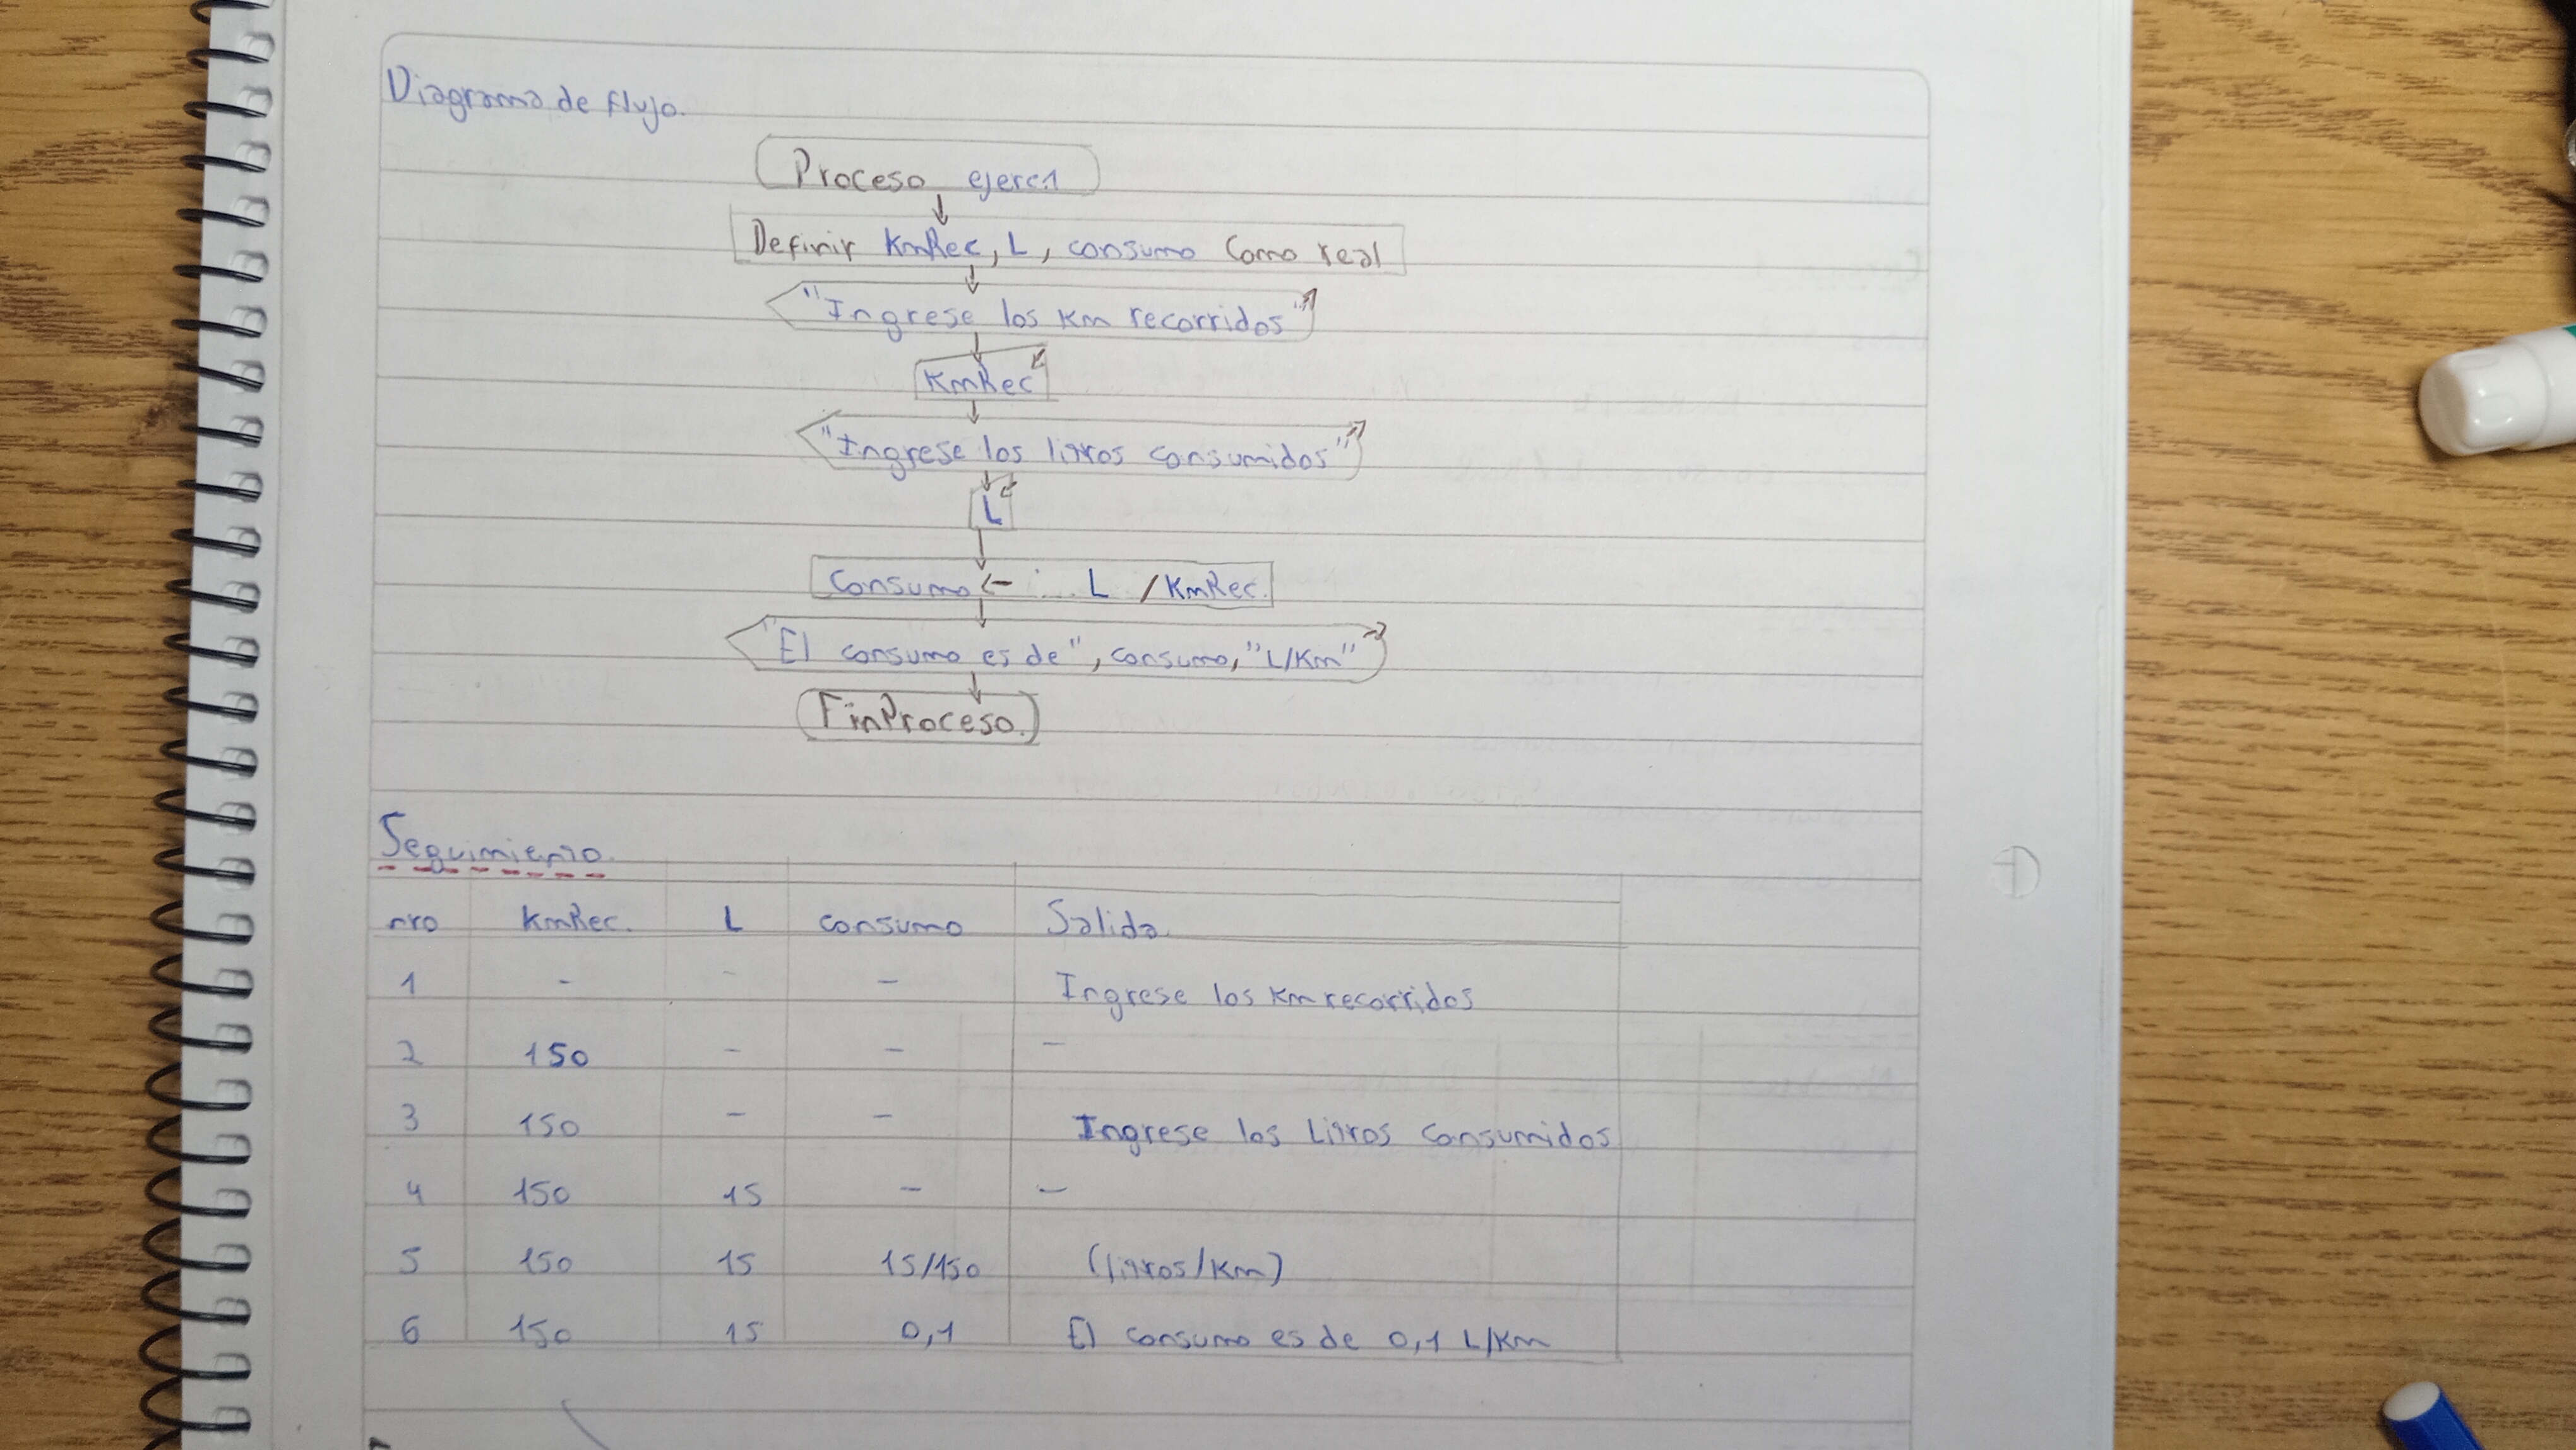 Diagrama de flujo.
Proceso ejerc1
Definir KmRec, L, consumo Como real
"Ingrese los Km recorridos"
KmRec
"Ingrese los litros consumidos"
L
Consumo <- L / KmRec.
"El consumo es de", consumo, "L/Km"
FinProceso.
Seguimiento.
nro KmRec. L consumo Salida.
1 - - - Ingrese los Km recorridos
2 150 - - -
3 150 - - Ingrese los Litros Consumidos
4 150 15 - -
5 150 15 15/150 (litros/Km)
6 150 15 0,1 El consumo es de 0,1 L/Km